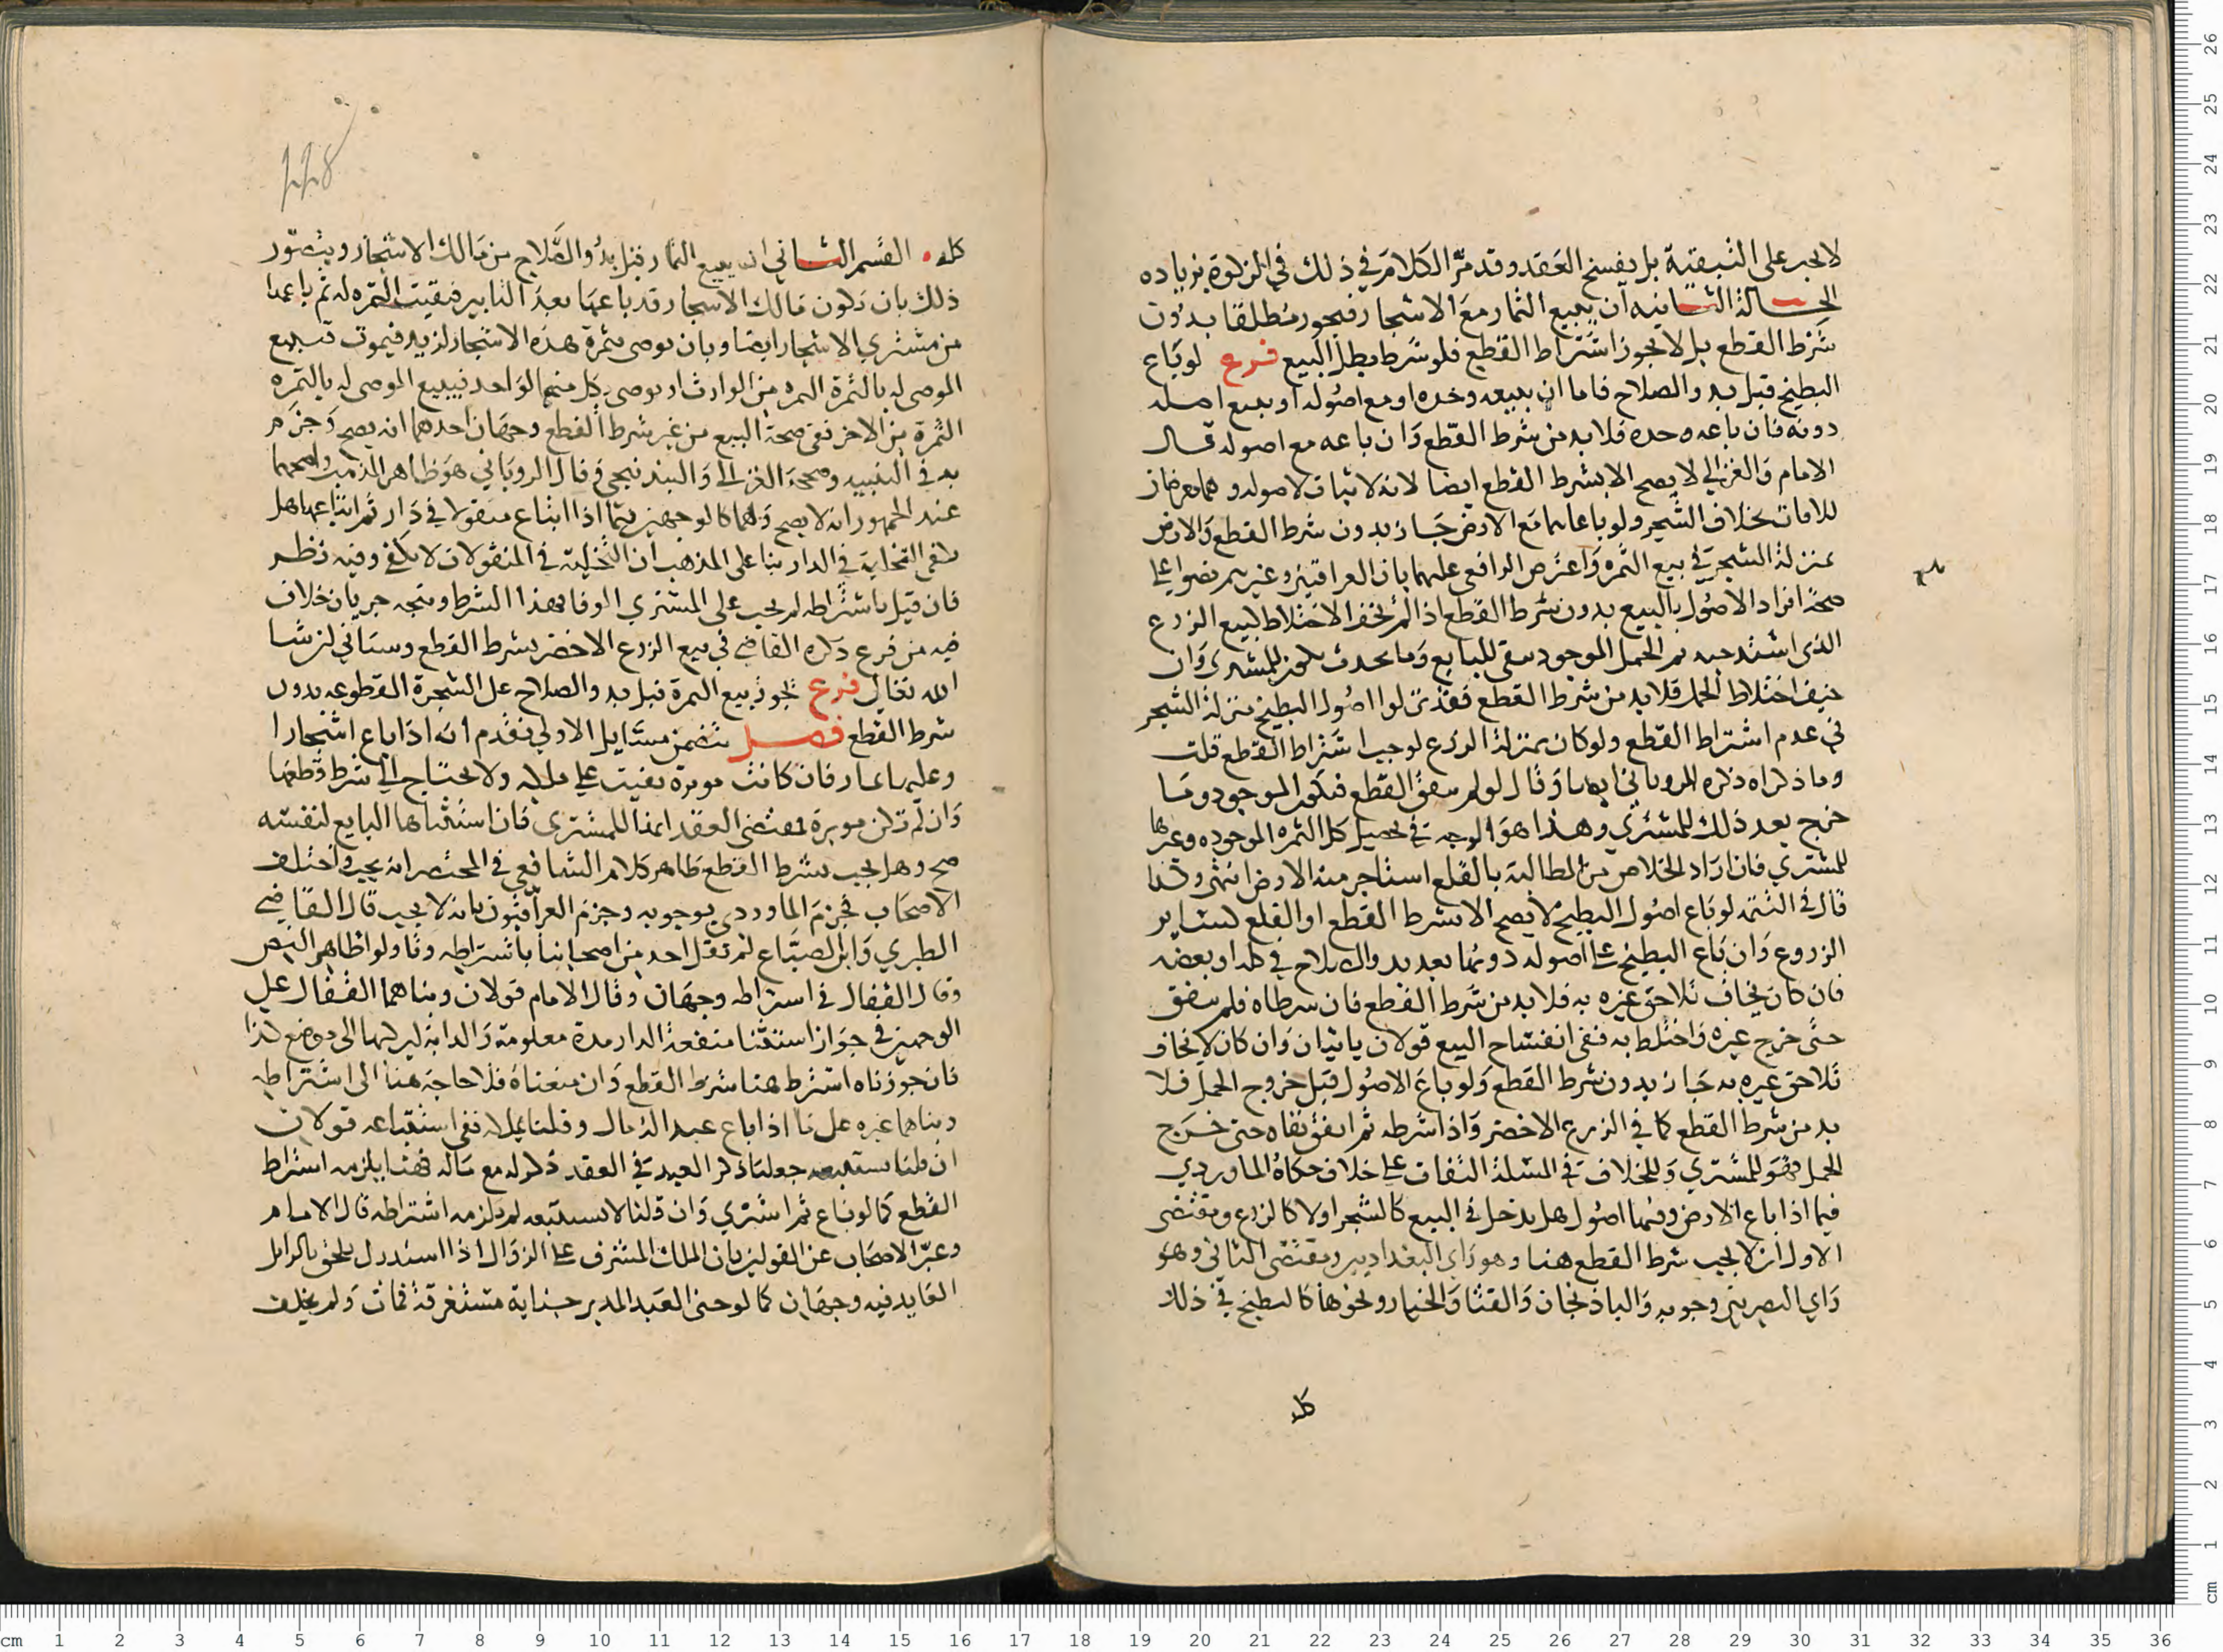 لا يجبر على التبقية بل يفسخ العقد وقد مر الكلام في ذلك في الزكوة بزياده
الحالة الثانيه ان يبيع الثمار مع الاشجار فيجوز مطلقا بدون
شرط القطع بل لا يجوز اشتراط القطع فلو شرط بطل البيع فرع لو باع
البطيخ قبل بدو الصلاح فاما ان يبيعه وحده او مع اصوله او يبيع اصله
دونه فان باعه وحده فلا بد من شرط القطع وان باعه مع اصوله قال
الامام والغزالي لا يصح الا بشرط القطع ايضا لانه لا ثبات لاصوله وهما معرضان
للافات بخلاف الشجر ولو باعاهما مع الارض جاز بدون شرط القطع والارض
بمنزلة الشجر في بيع الثمره واعترض الرافعي عليهما بان العراقيين وغيرهم نصوا على
صحة افراد الاصول بالبيع بدون شرط القطع اذا لم يخف الاختلاط كبيع الزرع
الذي اشتد حبه ثم الحمل الموجود يبقى للبايع وما يحدث يكون للمشتري وان
خيف اختلاط الحمل فلا بد من شرط القطع فقد نزلوا اصول البطيخ منزلة الشجر
في عدم اشتراط القطع ولو كان بمنزلة الزرع لوجب اشتراط القطع قلت
وما ذكراه ذكره الروياني ايضا وقال لو لم يتفق القطع فيكون الموجود وما
خرج بعد ذلك للمشتري وهذا هو الوجه في تحصيل كل الثمره الموجوده وغيرها
للمشتري فان اراد الخلاص من المطالبة بالقلع استاجر منه الارض انتهى وكذا
قال في التتمه لو باع اصول البطيخ لا يصح الا بشرط القطع او القلع كساير
الزروع وان باع البطيخ على اصوله دونها بعد بدو الصلاح في كله او بعضه
فان كان يخاف تلاحق غيره به فلا بد من شرط القطع فان شرطاه فلم يتفق
حتى خرج غيره واختلط به ففي انفساح البيع قولان ياتيان وان كان لا يخاف
تلاحق غيره به جاز بدون شرط القطع ولو باع الاصول قبل خروج الحمل فلا
بد من شرط القطع كما في الزرع الاخضر واذا شرطه ثم اتفق بقاه حتى خرج
الحمل فهو للمشتري وللخلاف في المسلة التفات على خلاف حكاه الماوردي
فيما اذا باع الارض وفيها اصول هل يدخل في البيع كالشجر او لا كالزرع ومقتضى
الاول ان لا يجب شرط القطع هنا وهو راي البغداديين ومقتضى الثاني وهو
راي البصريين وجوبه والباذنجان والقثا والخيار ونحوها كالبطيخ في ذلك
كله
كله القسم الثاني ان يبيع الثمار قبل بدو الصلاح من مالك الاشجار ويتصور
ذلك بان يكون مالك الاشجار قد باعها بعد التابير فبقيت الثمره له ثم باعها
من مشتري الاشجار ايضا وبان يوصى بثمرة هذه الاشجار لزيد فيموت فيبيع
الموصى له بالثمرة الثمره من الوارث او يوصي بكل منهما لواحد فيبيع الموصى له بالثمره
الثمرة من الاخر ففي صحة البيع من غير شرط القطع وجهان احدهما انه يصح وجزم
به في التنبيه وصححه الغزالي والبندنيجي وقال الروياني هو ظاهر المذهب واصحهما
عند الجمهور انه لا يصح وهما كالوجهين فيما اذا ابتاع منقولا في دار ثم ابتاعها هل
تكفي التخلية في الدار بنا على المذهب ان التخلية في المنقولات لا تكفي وفيه نظر
فان قيل باشتراطه لم يجب على المشتري الوفا بهذا الشرط ويتجه جريان خلاف
فيه من فرع ذكره القاضي في بيع الزرع الاخضر بشرط القطع وسياتي ان شا
الله تعالى فرع يجوز بيع الثمرة قبل بدو الصلاح على الشجرة المقطوعه بدون
شرط القطع فصل يتضمن مسايل الاولي تقدم انه اذا باع اشجارا
وعليها ثمار فان كانت موبرة بقيت على ملكه ولا يحتاج الى شرط قطعها
وان لم تكن موبرة فمقتضى العقد انها للمشتري فان استثناها البايع لنفسه
صح وهل يجب شرط القطع ظاهر كلام الشافعي في المختصر انه يجب واختلف
الاصحاب فجزم الماوردي بوجوبه وجزم العراقيون بانه لا يجب قال القاضي
الطبري وابن الصباغ لم يقل احد من اصحابنا باشتراطه وتاولوا ظاهر النص
وقال القفال في اشتراطه وجهان وقال الامام قولان وبناهما القفال على
الوجهين في جواز استثنا منفعة الدار مدة معلومة والدابة ليركبها الى موضع كذا
فان جوزناه اشترط هنا شرط القطع وان منعناه فلا حاجة هنا الى اشتراطه
وبناهما غيره على ما اذا باع عبدا له مال وقلنا يملك ففي استتباعه قولان
ان قلنا يستتبعه جعلنا ذكر العبد في العقد ذكرا له مع ماله فهنا يلزمه اشتراط
القطع كما لو باع ثم اشترى وان قلنا لا يستتبعه لم يلزمه اشتراطه قال الامام
وعبر الاصحاب عن القولين بان الملك المشرف على الزوال اذا استدرك يلحق بالزايل
العايد فيه وجهان كما لو جنى العبد المدبر جناية مستغرقة فمات ولم يخلف